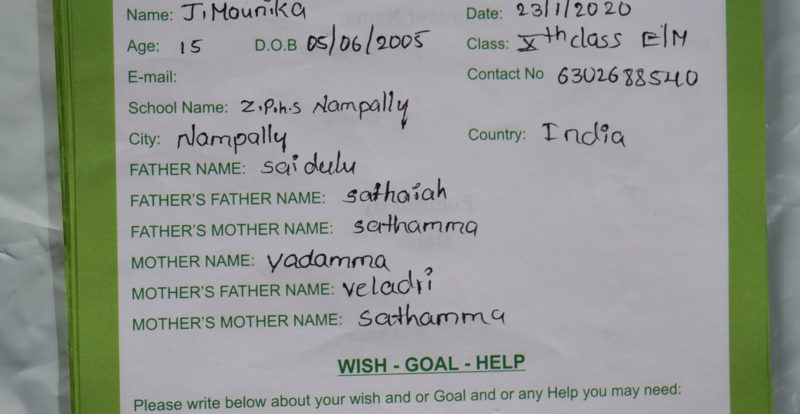 Name: J. Mounika Date: 23/1/2020
Age: 15 D.O.B 05/06/2005 Class: Xth class E/M
E-mail: Contact No 6302688540
School Name: Z.P.h.s Nampally
City: Nampally Country: India
FATHER NAME: saidulu
FATHER'S FATHER NAME: sathaiah
FATHER'S MOTHER NAME: sathamma
MOTHER NAME: yadamma
MOTHER'S FATHER NAME: veladri
MOTHER'S MOTHER NAME: sathamma
WISH - GOAL - HELP
Please write below about your wish and or Goal and or any Help you may need: